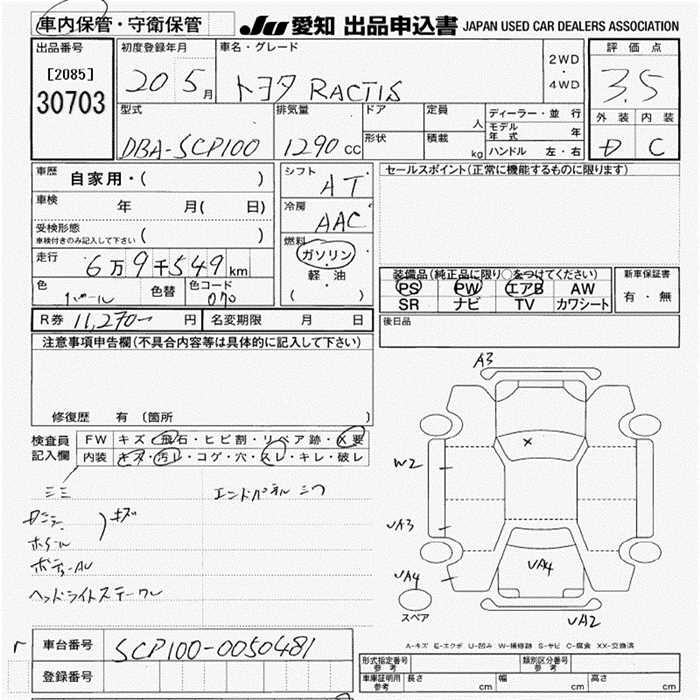 車内保管・守衛保管
JU 愛知 出品申込書 JAPAN USED CAR DEALERS ASSOCIATION
出品番号
[2085]
30703
初度登録年月
20 5月
車名・グレード
トヨタ RACTIS
2WD
・
4WD
評価点
3.5
外装 内装
D C
型式
DBA-SCP100
排気量
1290 cc
ドア
形状
定員
人
積載
kg
ディーラー・並行
モデル年式 年
ハンドル 左・右
車歴 自家用・( )
車検 年 月( 日)
受検形態
車検付きのみ記入して下さい ( )
走行 6万9千549km
色 パール 色替 色コード 070
シフト AT
冷房 AAC
燃料
ガソリン
軽・油
( )
R券 11,270- 円 名変期限 月 日
セールスポイント(正常に機能するものに限ります)
装備品(純品正に限り○をつけてください)
PS PW エアB AW
SR ナビ TV カワシート
新車保証書
有・無
後日品
注意事項申告欄(不具合内容等は具体的に記入して下さい)
修復歴 有 (箇所
検査員記入欄
FW キズ・飛石・ヒビ割・リペア跡・X要
内装 キズ・汚レ・コゲ・穴・スレ・キレ・破レ
エンドパネル
キズ
ヘッドライト
A3
W2
UA3
UA4
UA4
UA2
×
スペア
A-キズ E-エクボ U-凹み W-補修跡 S-サビ C-腐食 XX-交換済
車台番号 SCP100-0050481
登録番号
形式指定番号 参考
類別区分番号 参考
車庫証明用 参考 長さ cm 幅 cm 高さ cm